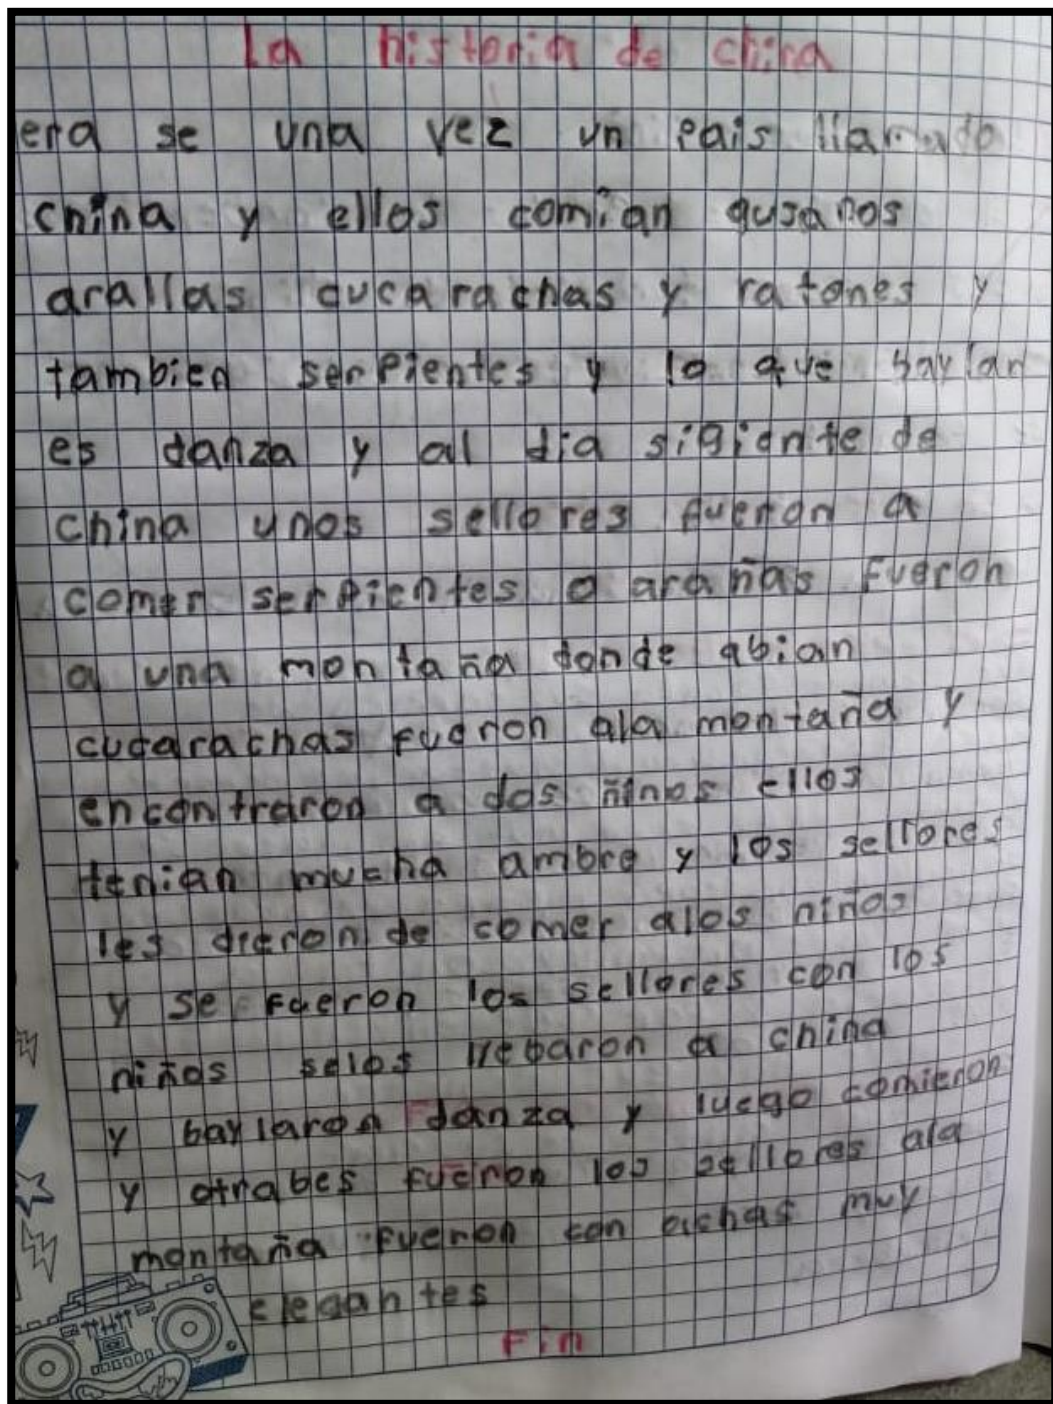 La historia de china
era se una vez un pais llamado
china y ellos comian gusanos
arallas cucarachas y ratones y
tambien serpientes y lo que baylan
es danza y al dia sigiente de
china unos sellores fueron a
comer serpientes o arañas fueron
a una montaña donde abian
cucarachas fueron ala montaña y
encontraron a dos ñinos ellos
tenian mucha ambre y los sellores
les dieron de comer alos niños
y se fueron los sellores con los
niños selos llebaron a china
y baylaron danza y luego comieron
y otrabes fueron los sellores ala
montaña fueron con muy
elegantes
Fin